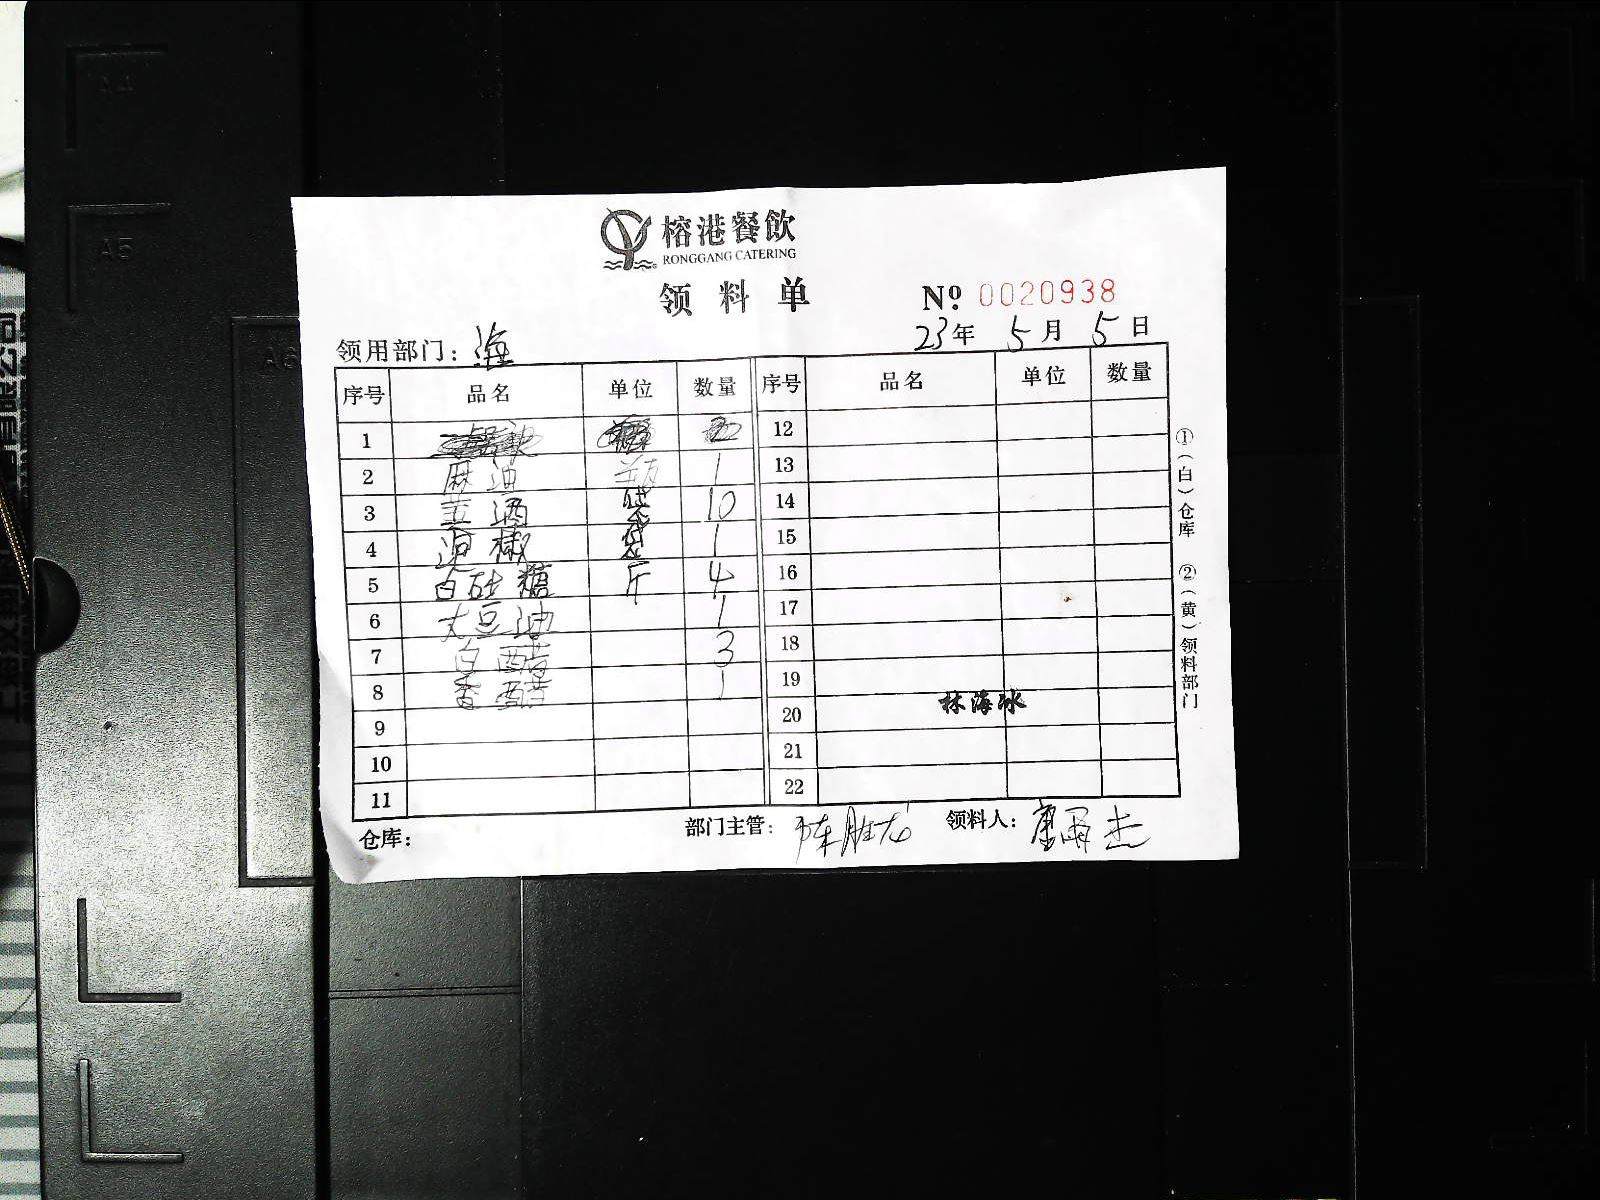 榕港餐飲
RONGGANG CATERING
领料单
№ 0020938
领用部门：
23年 5月 5日
序号 品名 单位 数量 序号 品名 单位 数量
1 12
2 麻油 瓶 1 13
3 10 14
4 椒 袋 1 15
5 白砂糖 斤 4 16
6 大豆油 1 17
7 白醋 3 18
8 香醋 1 19
9 20 林海冰
10 21
11 22
①（白）仓库 ②（黄）领料部门
仓库： 部门主管：陈胜龙 领料人：雨杰
A4
A5
A6